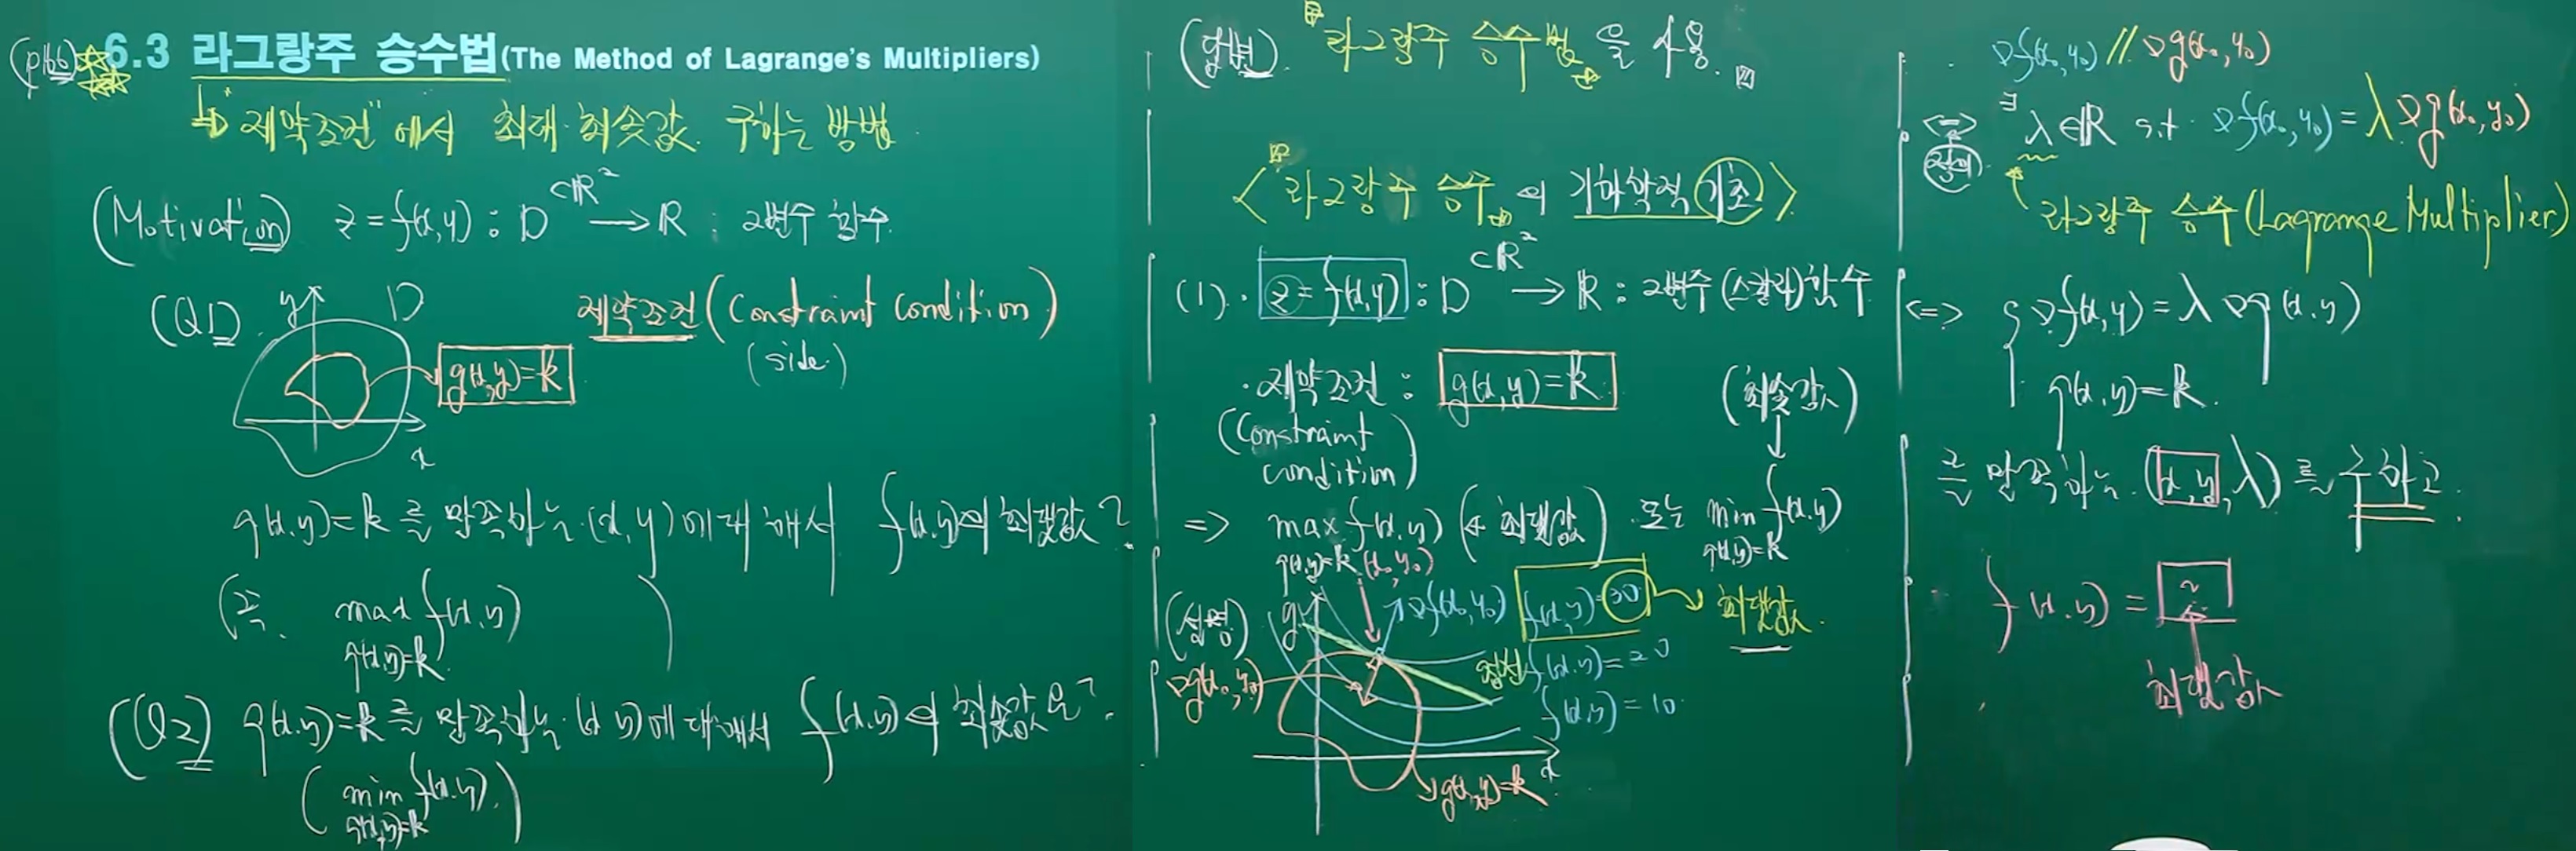 (p166) 6.3 라그랑주 승수법(The Method of Lagrange's Multipliers)
"제약조건"에서 최대·최솟값 구하는 방법
(Motivation) z = f(x,y) : D ⊂ℝ² → ℝ : 2변수 함수
(Q1)
y
D
x
g(x,y)=k
제약조건 (Constraint condition)
(side)
g(x,y)=k를 만족하는 (x,y)에 대해서 f(x,y)의 최댓값?
(즉, max f(x,y))
g(x,y)=k
(Q2) g(x,y)=k를 만족하는 (x,y)에 대해서 f(x,y)의 최솟값은?
(min f(x,y).)
g(x,y)=k
(답변). "라그랑주 승수법"을 사용.
<"라그랑주 승수"의 기하학적 기초>
(1). z = f(x,y) : D ⊂ℝ² → ℝ : 2변수(스칼라)함수
·제약조건 : g(x,y)=k
(Constraint
condition)
(최솟값)
↓
=> max f(x,y) (← 최댓값) 또는 min f(x,y)
g(x,y)=k
g(x,y)=k
(설명)
y
(x₀,y₀)
∇f(x₀,y₀)
f(x,y)=30
→ 최댓값.
접선
f(x,y)=20
f(x,y)=10
∇g(x₀,y₀)
x
g(x,y)=k
∇f(x₀,y₀) // ∇g(x₀,y₀)
<=> 정의 ∃λ∈ℝ s.t. ∇f(x₀,y₀) = λ∇g(x₀,y₀)
라그랑주 승수 (Lagrange Multiplier)
<=> { ∇f(x,y) = λ∇g(x,y)
g(x,y)=k.
를 만족하는 (x,y,λ)를 구하고.
f(x,y) =
최댓값